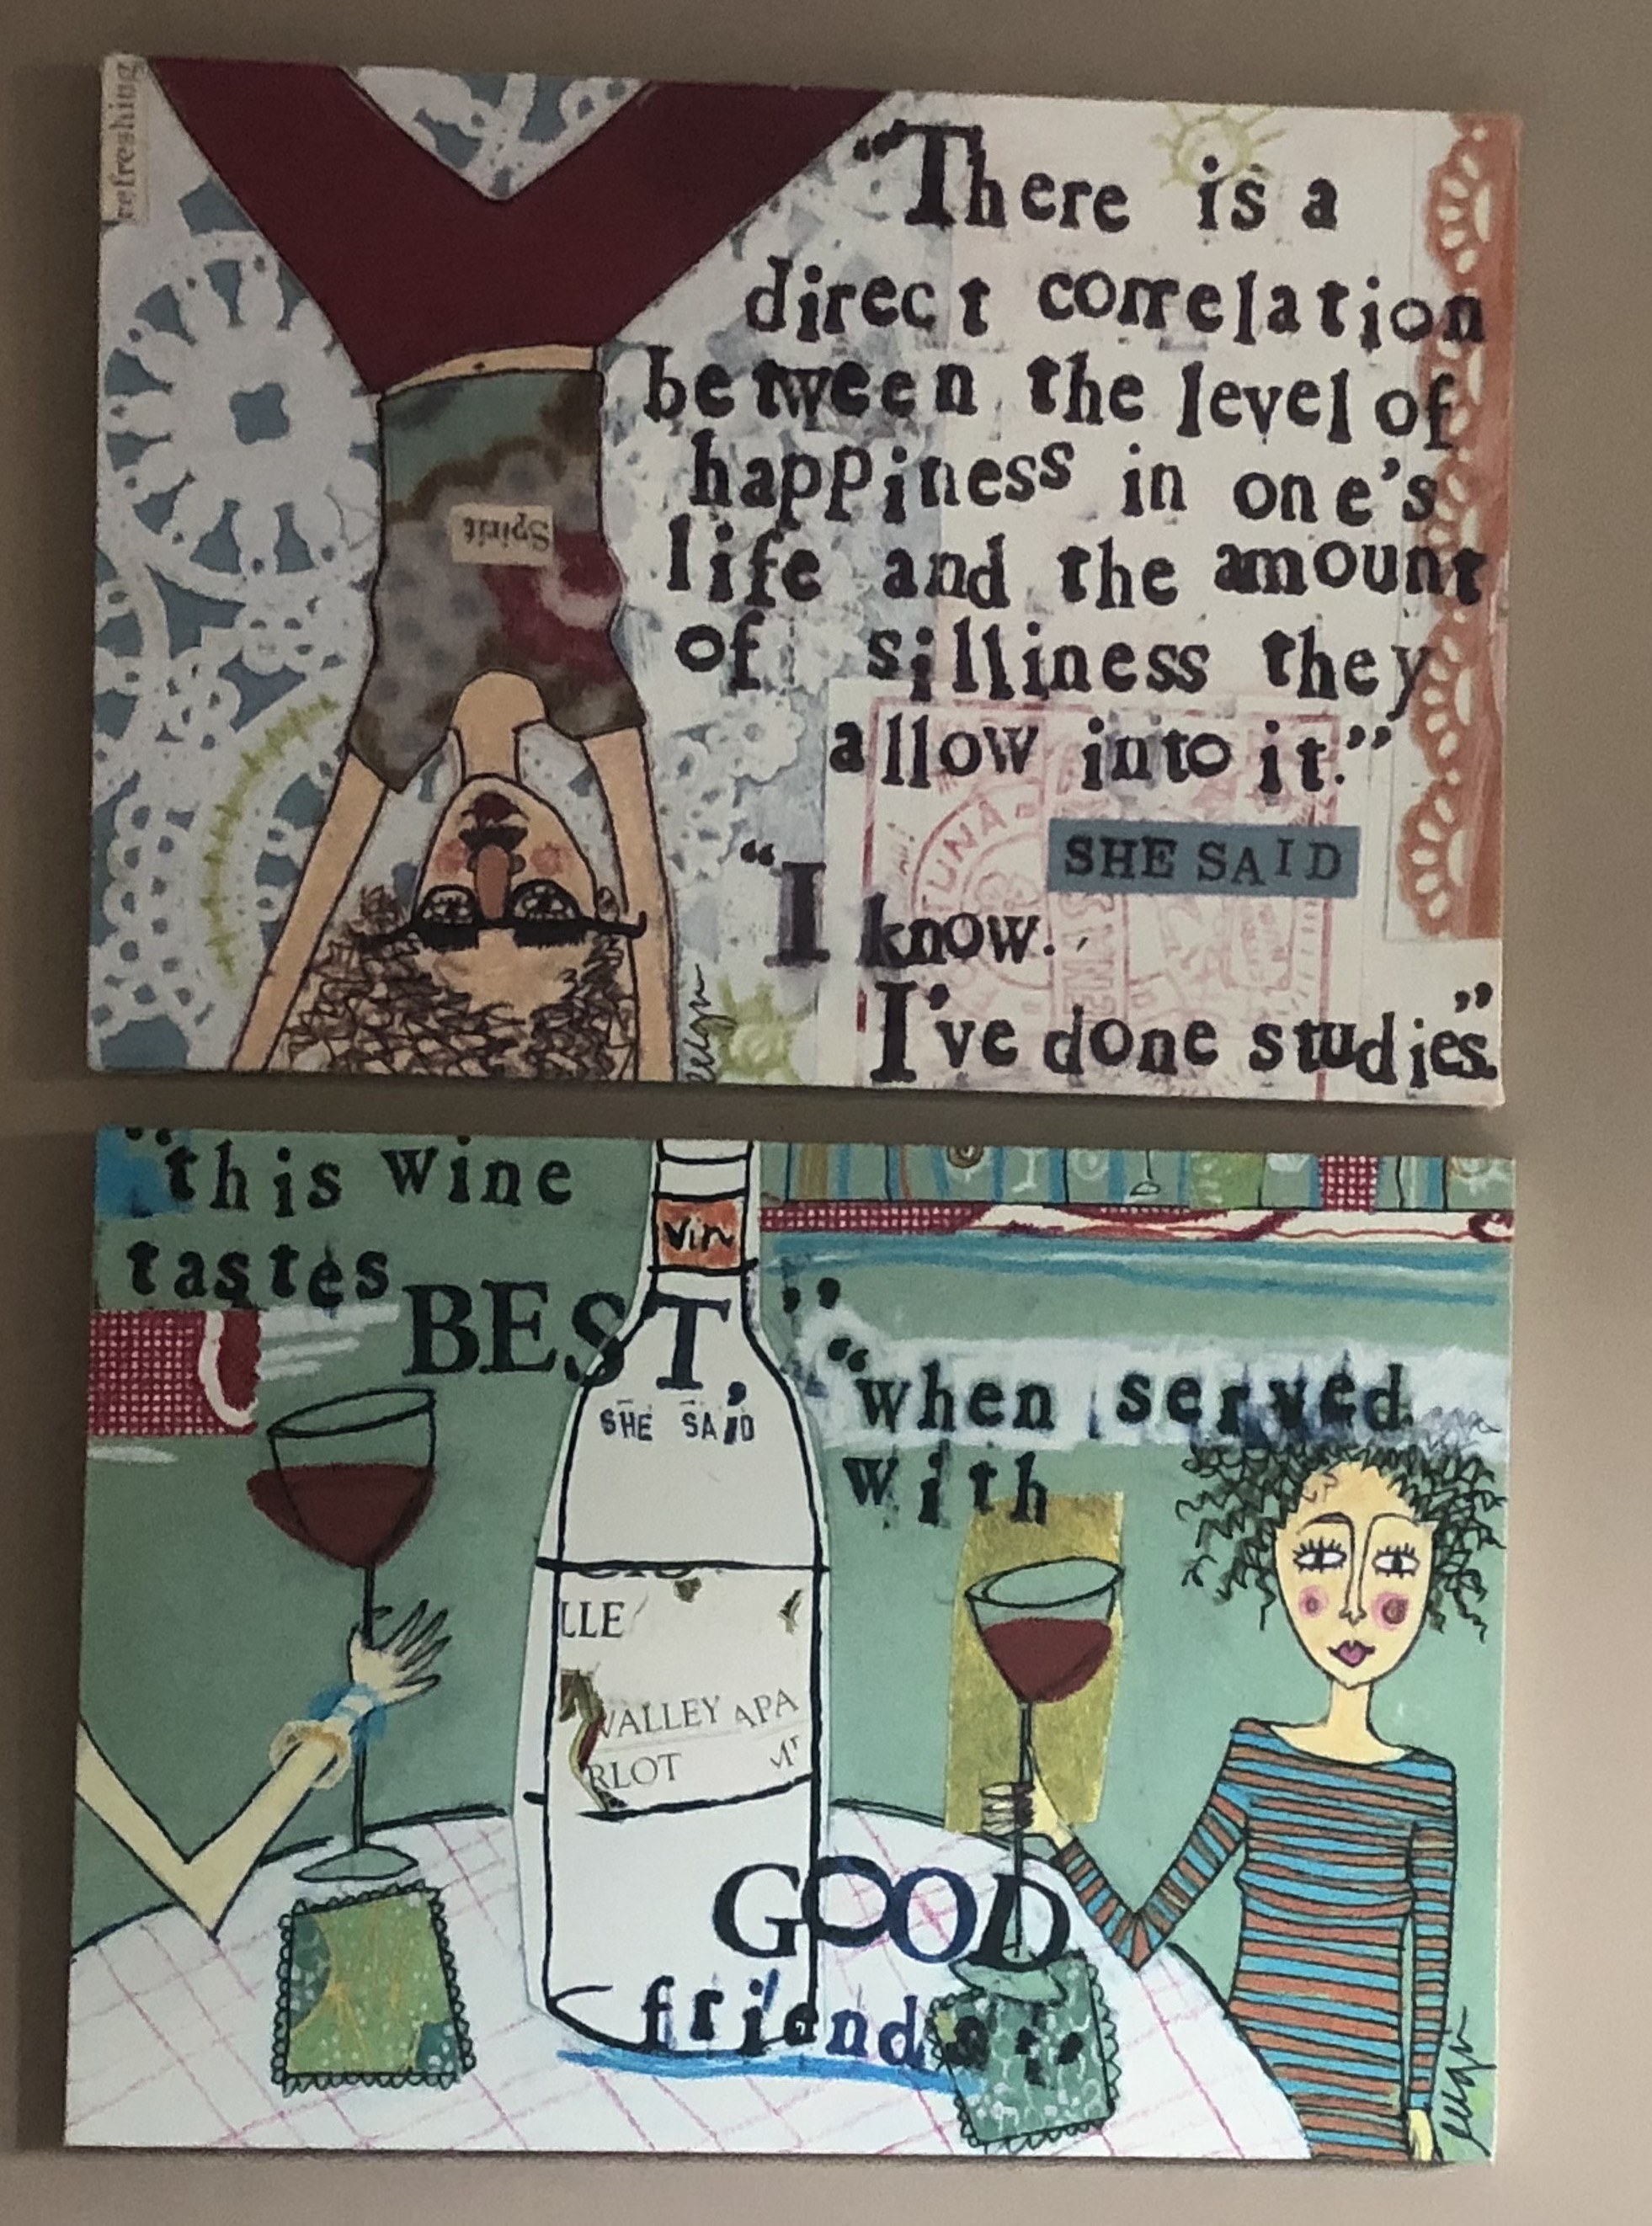 refreshing
"There is a
direct correlation
between the level of
happiness in one's
life and the amount
of silliness they
allow into it."
Spirit
SHE SAID
"I know.
I've done studies."
"this wine
tastes BEST,"
vin
SHE SAID
"when served
with
LLE
VALLEY APA
RLOT
GOOD
friends."